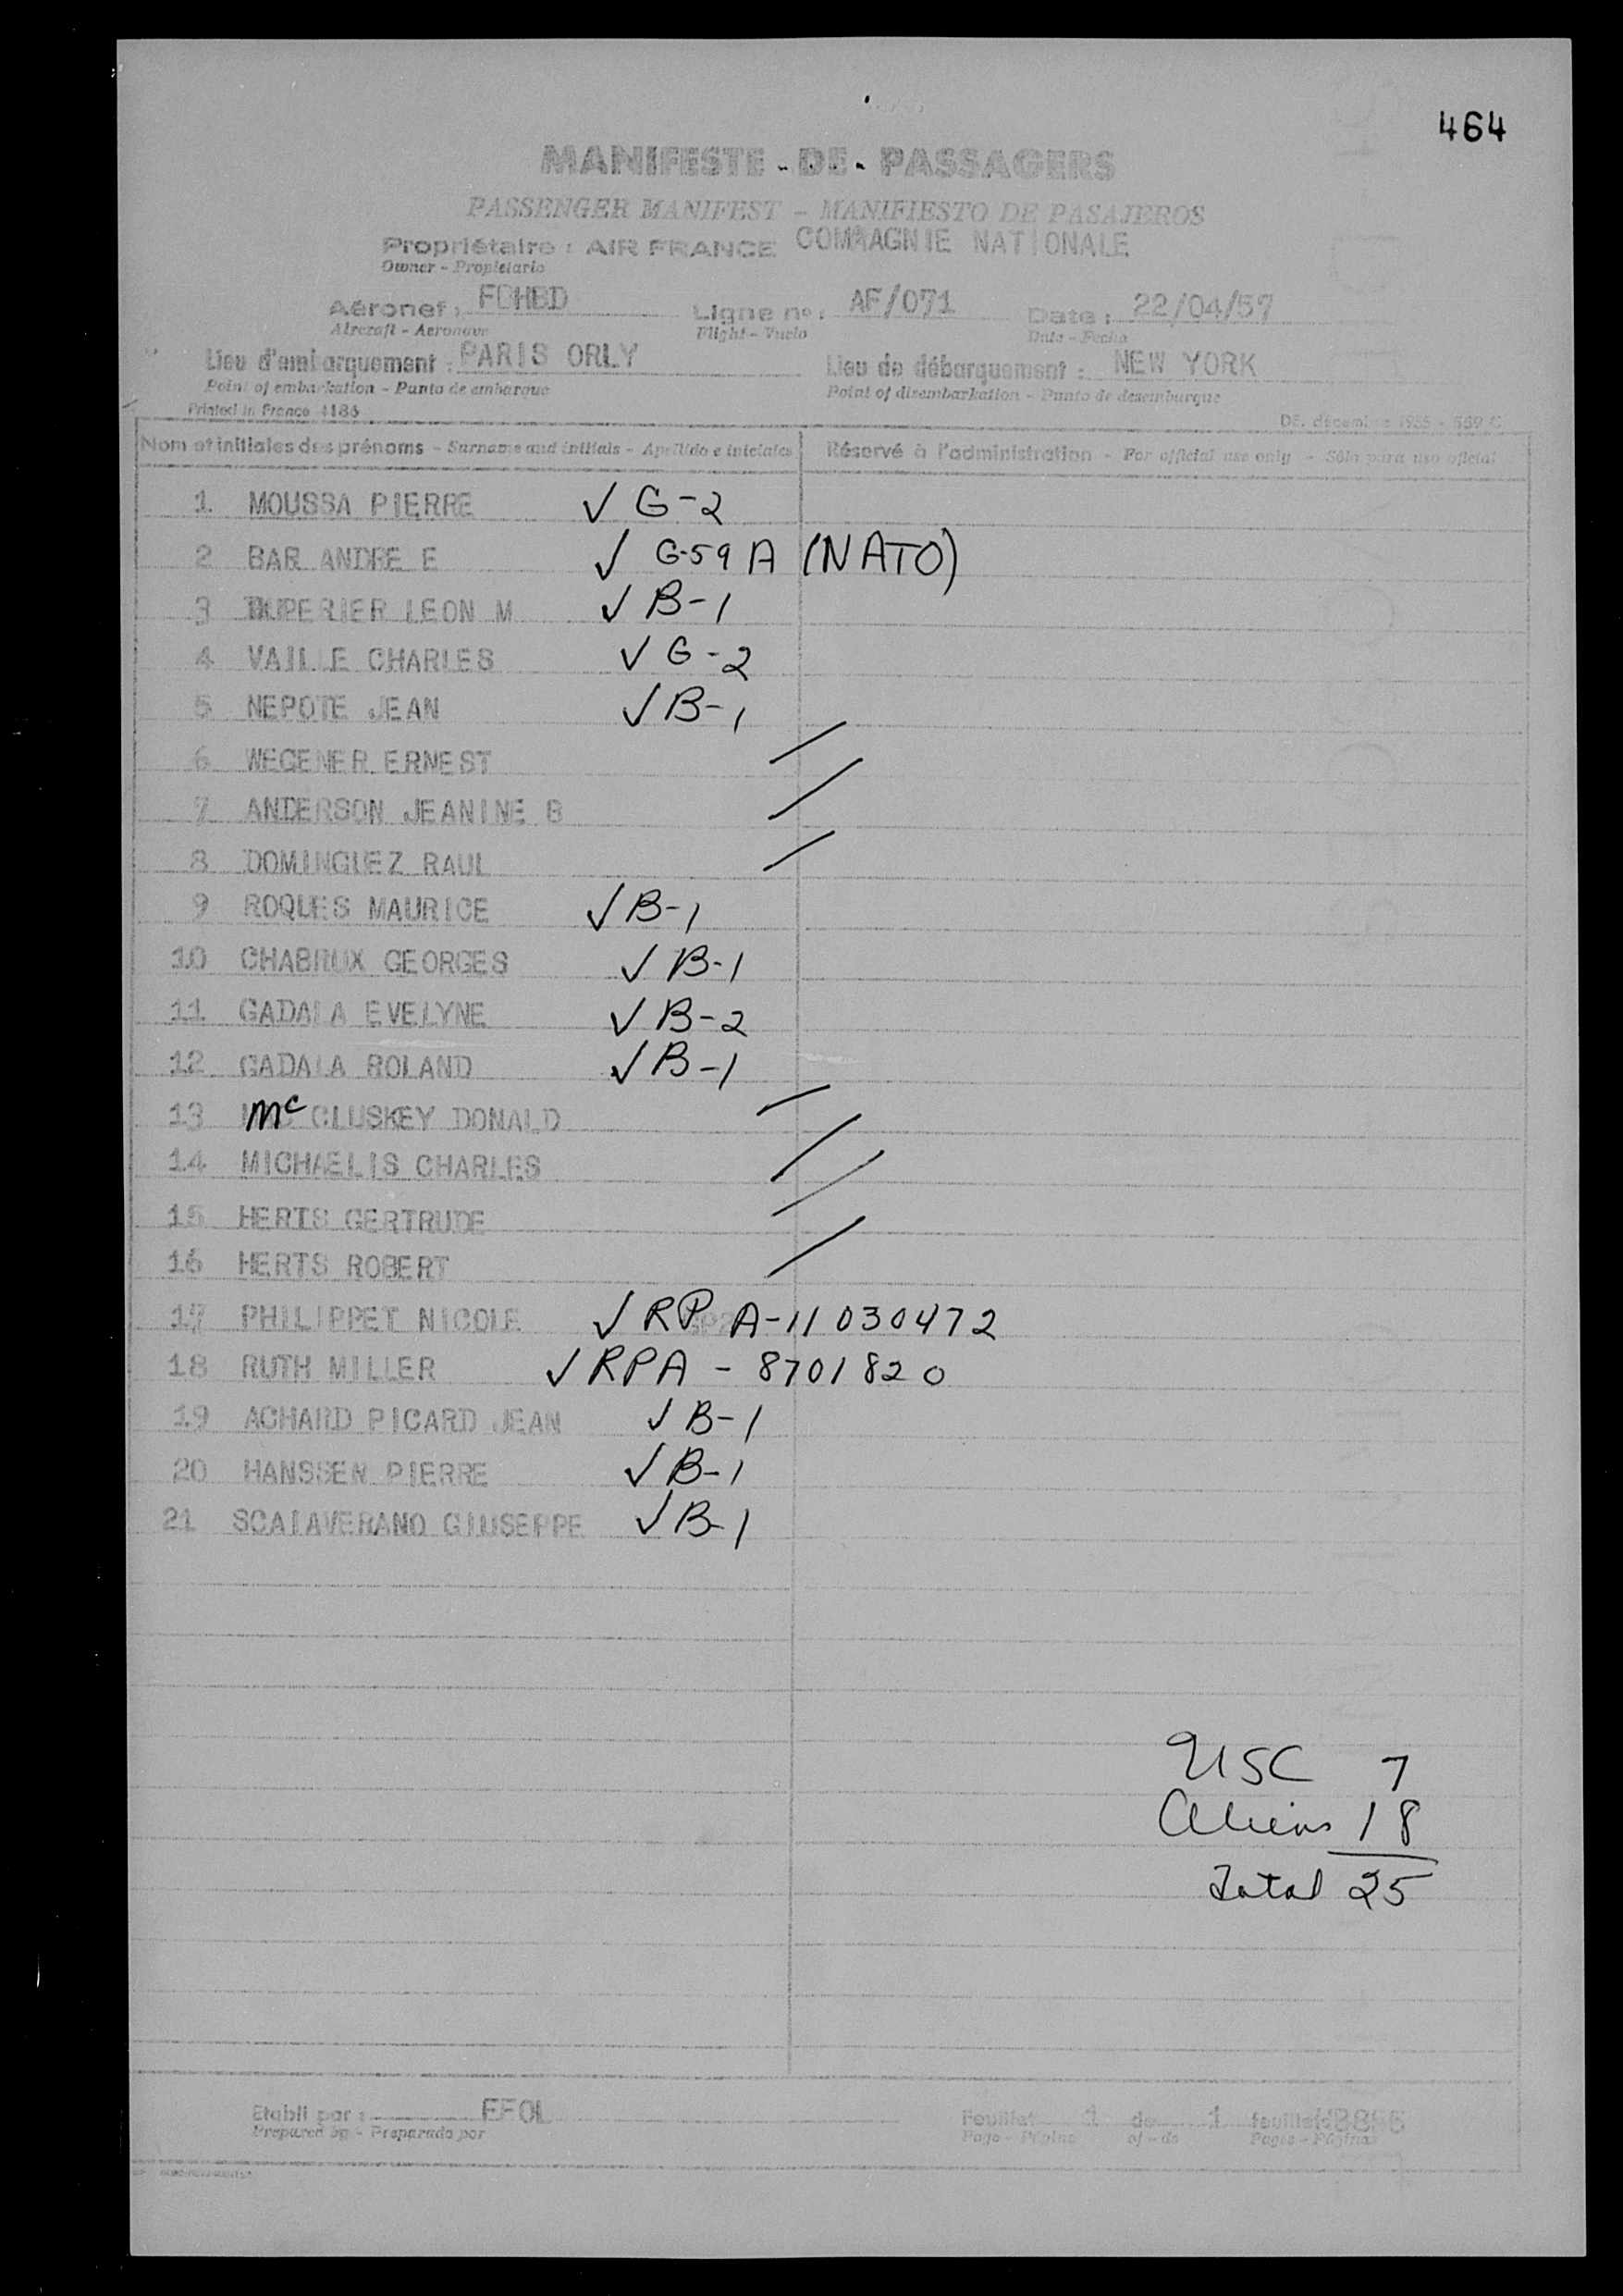 464
MANIFESTE - DE - PASSAGERS
PASSENGER MANIFEST - MANIFIESTO DE PASAJEROS
Propriétaire : AIR FRANCE COMPAGNIE NATIONALE
Owner - Propietario
Aéronef : FBHBD Ligne no : AF/071 Date : 22/04/57
Aircraft - Aeronave Flight - Vuelo Date - Fecha
Lieu d'embarquement : PARIS ORLY Lieu de débarquement : NEW YORK
Point of embarkation - Punto de embarque Point of disembarkation - Punto de desembarque
Printed in France 4186
Nom et initiales des prénoms - Surname and initials - Apellido e iniciales Réservé à l'administration - For official use only - Sólo para uso oficial
1 MOUSSA PIERRE ✓ G-2
2 BAR ANDRE E ✓ G-59 A (NATO)
3 DUPERIER LEON M ✓ B-1
4 VAILLE CHARLES ✓ G-2
5 NEPOTE JEAN ✓ B-1
6 WEGENER ERNEST
7 ANDERSON JEANINE B
8 DOMINGUEZ RAUL
9 ROQUES MAURICE ✓ B-1
10 CHABRUX GEORGES ✓ B-1
11 GADALA EVELYNE ✓ B-2
12 GADALA ROLAND ✓ B-1
13 Mc CLUSKEY DONALD
14 MICHAELIS CHARLES
15 HERTS GERTRUDE
16 HERTS ROBERT
17 PHILIPPET NICOLE ✓ RP A-11030472
18 RUTH MILLER ✓ RPA - 8701820
19 ACHARD PICARD JEAN ✓ B-1
20 HANSSEN PIERRE ✓ B-1
21 SCALAVERANO GIUSEPPE ✓ B-1
USC 7
Aliens 18
Total 25
Etabli par : EFOL Feuillet 1 de 1 feuillets
Prepared by - Preparado por Page - Página of - de Pages - Páginas